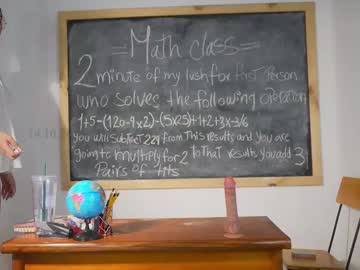 =Math class=
2 minute of my lush for first person
who solves the following operation
1+5-(120-9x2)-(5x25)+1+2+3x-3/6
you will subtract 229 from this results and you are
going to multiply for 2 to that results you add 3
Pairs of tits